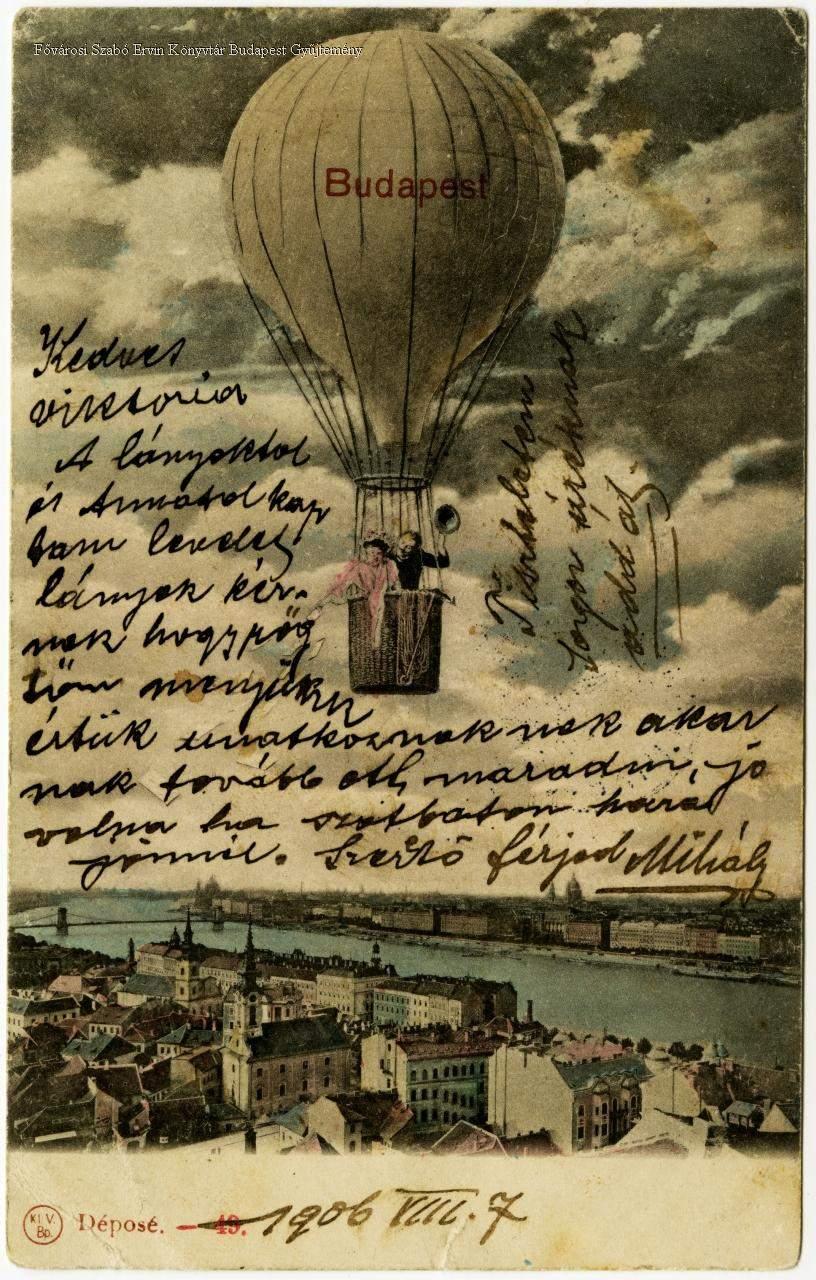 Fővárosi Szabó Ervin Könyvtár Budapest Gyűjtemény
Budapest
Kedves
Viktoria
A lányoktol
és Annatol kap
tam levelet
lányok kér-
nek hogy rög
tön menjünk
értük unatkoznak nek akar
nak tovább ott maradni, jo
volna ha szotbaton hara
jönnél. Szerető férjed Mihály
Tiszteletem
úréknak
add át.
Kl. V.
Bp.
Déposé. — 49. 1906 VIII. 7